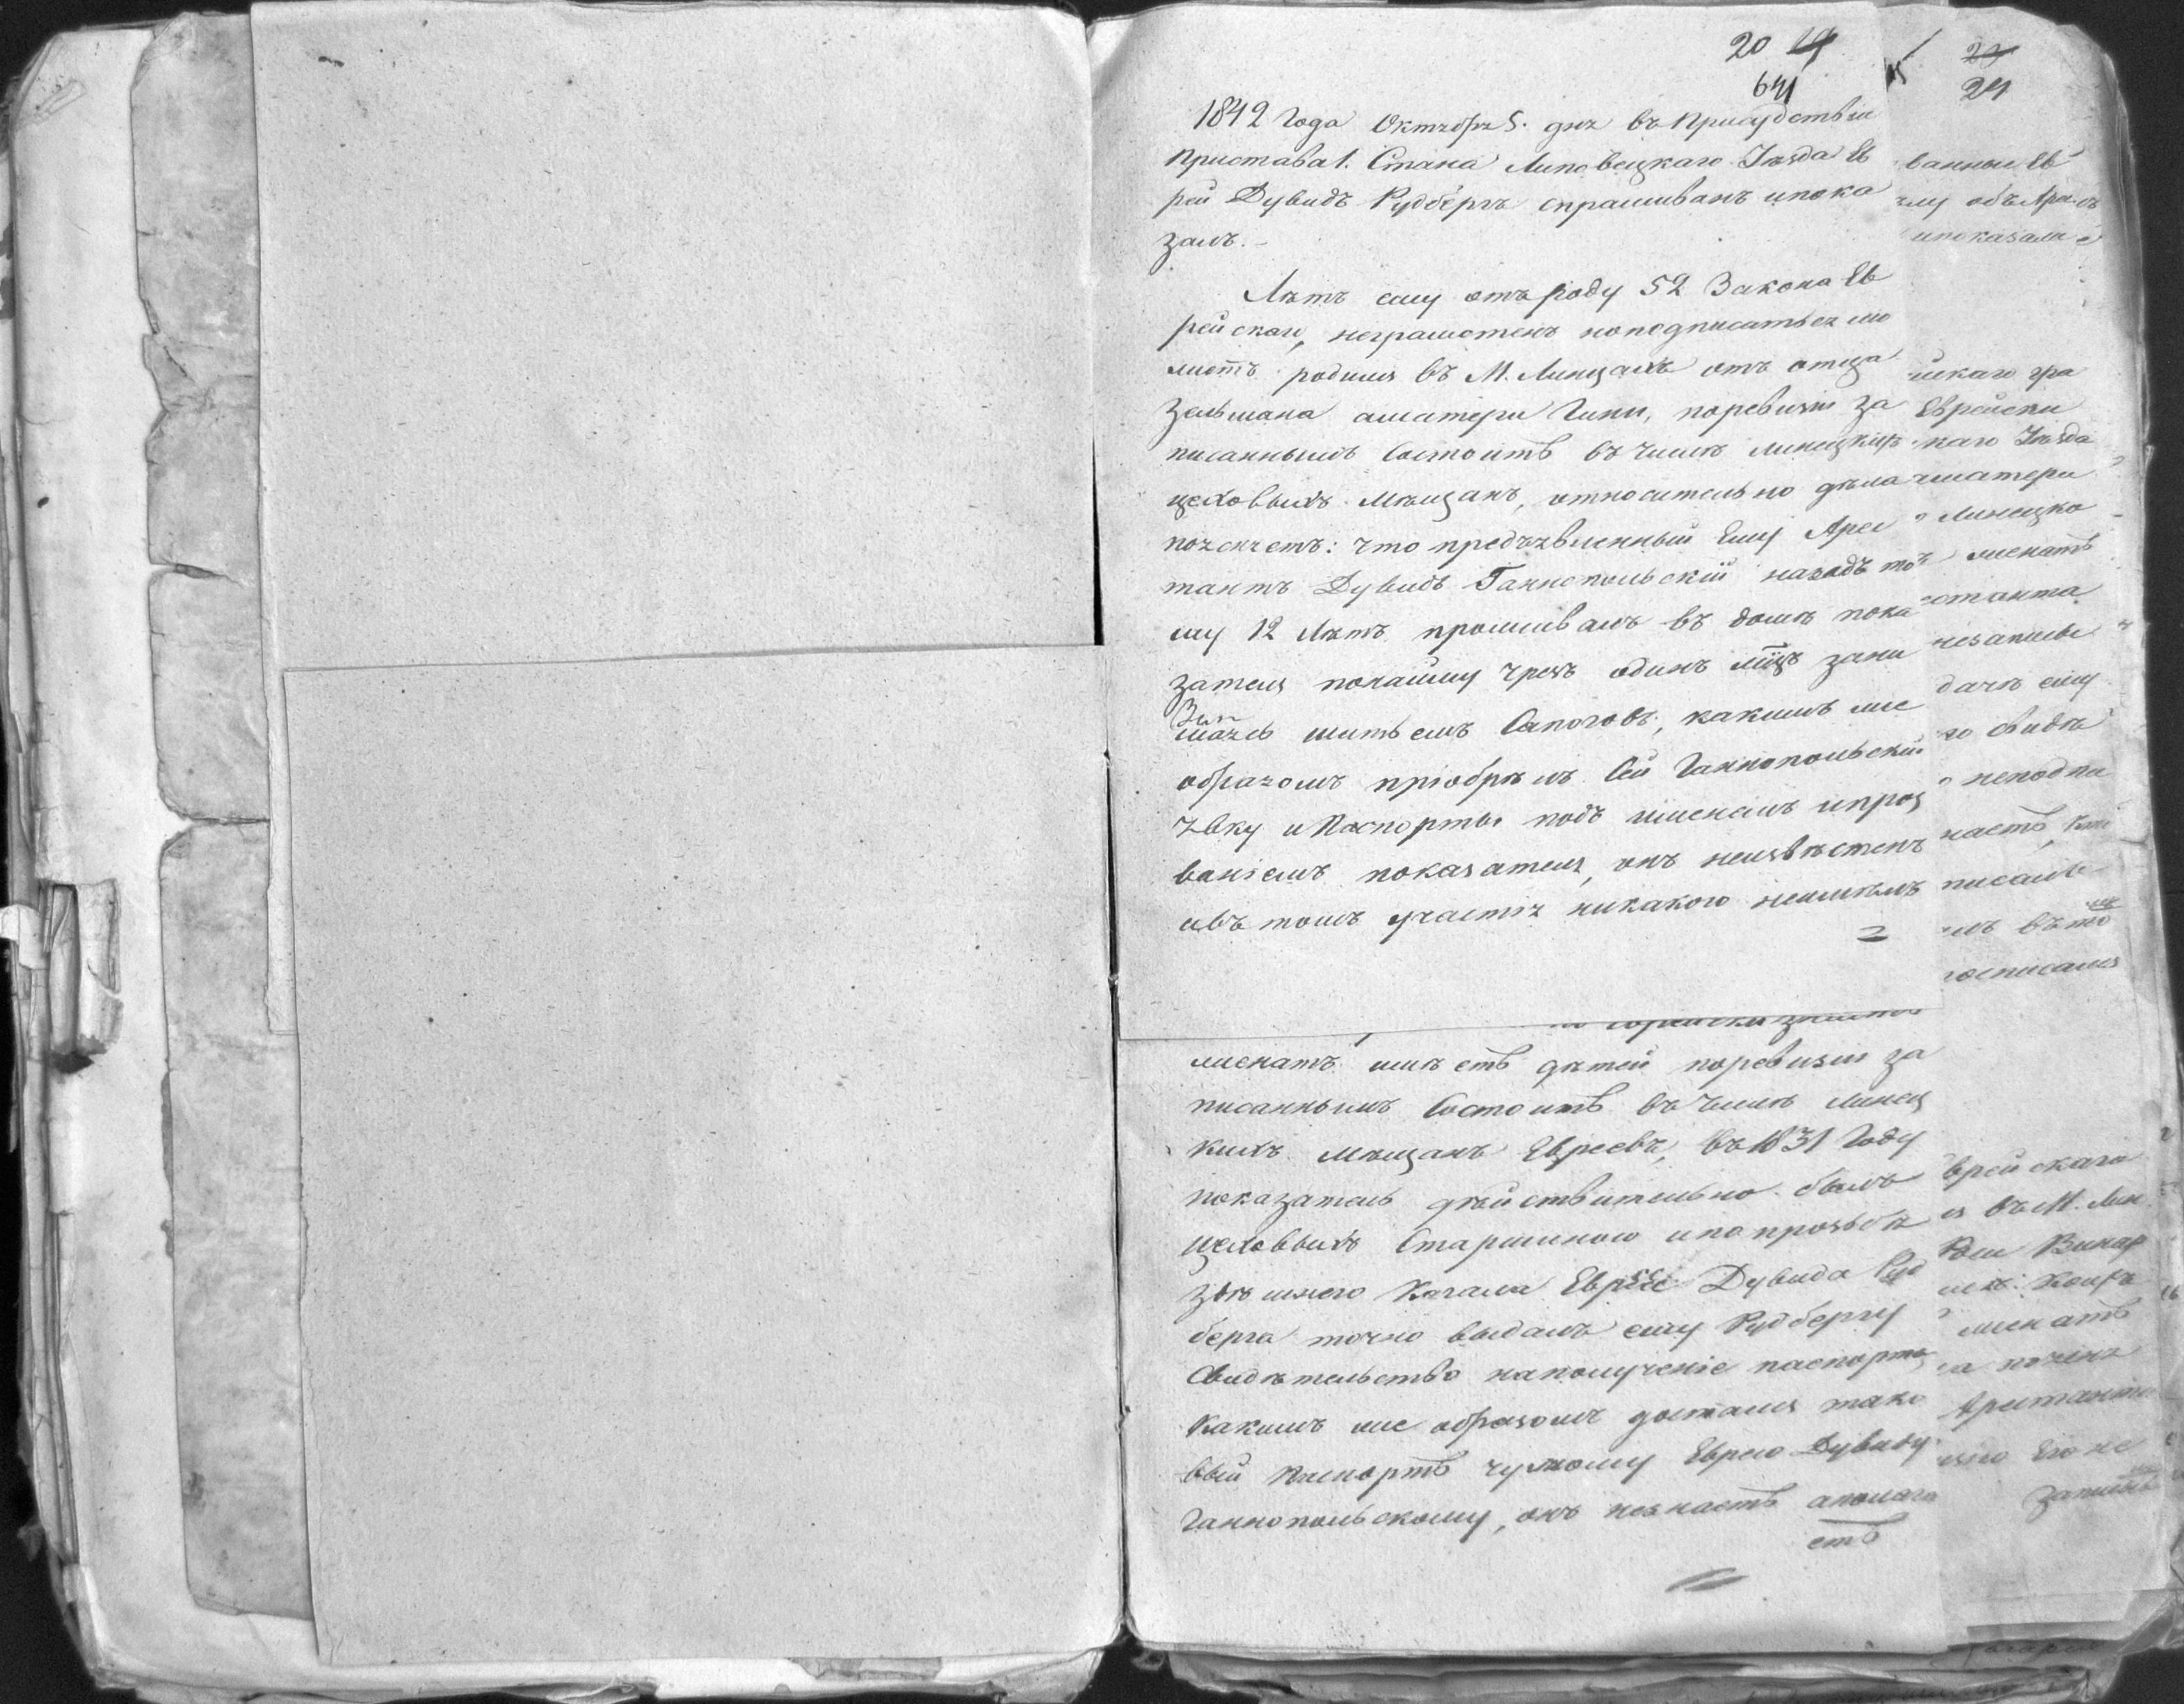 20 19
641
1842 Года Октября 5. дня въ Присудствіи
Пристава 1. Стана Липовецкаго Уѣзда Ев
рей Дувидъ Рудбергъ спрашиванъ и пока
залъ.
Лѣтъ ему отъ роду 52 Закона Ев
рейскаго, неграмотенъ но подписаться мо
жетъ родился въ М. Линцахъ отъ отца
Зельмана а матери Гини, по ревизіи за
писаннымъ Состоитъ въ Числѣ Линецкихъ
цеховыхъ Мѣщанъ, относительно дѣла
поясняетъ: что предъявленный Ему Арес
тантъ Дувидъ Ганнопольскій назадъ то
му 12 Лѣтъ проживалъ въ домѣ пока
зателя по найму чрезъ одинъ мцъ зани
маясь шитьемъ Сапоговъ, какимъ же
образомъ пріобрѣлъ Сей Ганнопольскій
явку и Паспорты подъ именемъ и проз
ваніемъ показателя, онъ неизвѣстенъ
и въ томъ участія никакого неимѣлъ
женатъ имѣетъ дѣтей по ревизіи за
писаннымъ Состоитъ въ Числѣ Линец
кихъ Мѣщанъ Евреевъ, въ 1831 Году
показатель дѣйствительно былъ
Цеховыхъ Старшиною и по прозьбѣ
здѣшнего Кагала Дувида Руд
берга точно выдалъ ему Рудбергу
Свидѣтельство на полученіе паспорта
Какимъ же образомъ достался тако
вый Паспортъ чужому Еврею Дувиду
Ганнопольскому, онъ незнаетъ а полага
етъ
24
ванные Ев
ему объ Арес
и показали
йскаго гра
Еврейски
каго Уѣзда
матери
Линецко
женатъ
станта
дачѣ ему
го Свидѣ
неподпи
наетъ
писалъ
въ то
росписался
врейскаго
въ М. Лин
Винар
женатъ
а поясн
Арестанта
Его не